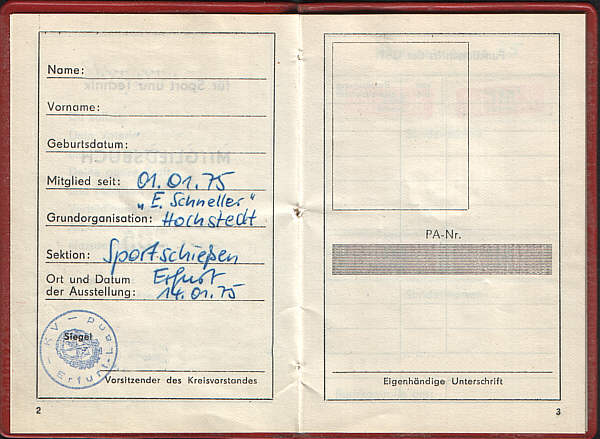 Name:
Vorname:
Geburtsdatum:
Mitglied seit: 01.01.75
"E. Schneller"
Grundorganisation: Hochstedt
Sektion: Sportschießen
Ort und Datum Erfurt
der Ausstellung: 14.01.75
KV - Erfurt-Land -
Siegel
Vorsitzender des Kreisvorstandes
2
PA-Nr.
Eigenhändige Unterschrift
3